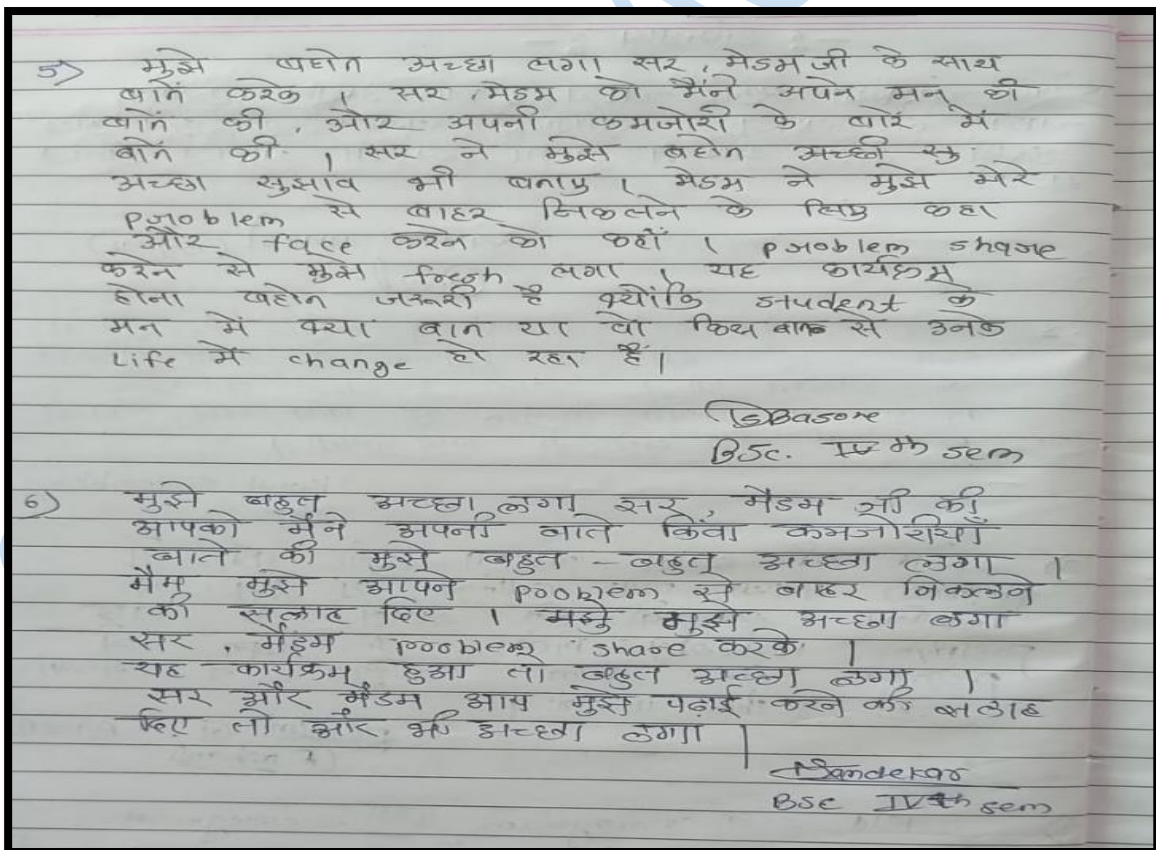 5) मुझे बहोत अच्छा लगा सर, मेडम जी के साथ
बातें करके । सर, मेडम को मैंने अपने मन की
बातें की, ओर अपनी कमजोरी के बारे में
बातें की । सर ने मुझे बहोत अच्छी सु
अच्छा सुझाव भी बताए । मेडम ने मुझे मेरे
problem से बाहर निकलने के लिए कहा
और face करने को कहाँ । problem share
करने से मुझे fresh लगा । यह कार्यक्रम
होना बहोत जरूरी है क्योंकि student के
मन में क्या बात या वो किस बात से उनके
Life में change हो रहा हैं।
SBasore
BSc. IV th sem
6) मुझे बहुत अच्छा लगा सर, मैडम जी की
आपको मैंने अपनी बाते किंवा कमजोरियाँ
बाते की मुझे बहुत - बहुत अच्छा लगा ।
मैम मुझे आपने problem से बाहर निकलने
की सलाह दिए । मुझे अच्छा लगा
सर, मैडम problem share करके ।
यह कार्यक्रम हुआ तो बहुत अच्छा लगा ।
सर और मैडम आप मुझे पढ़ाई करने की सलाह
दिए तो और भी अच्छा लगा ।
Bandekar
BSC IVth sem